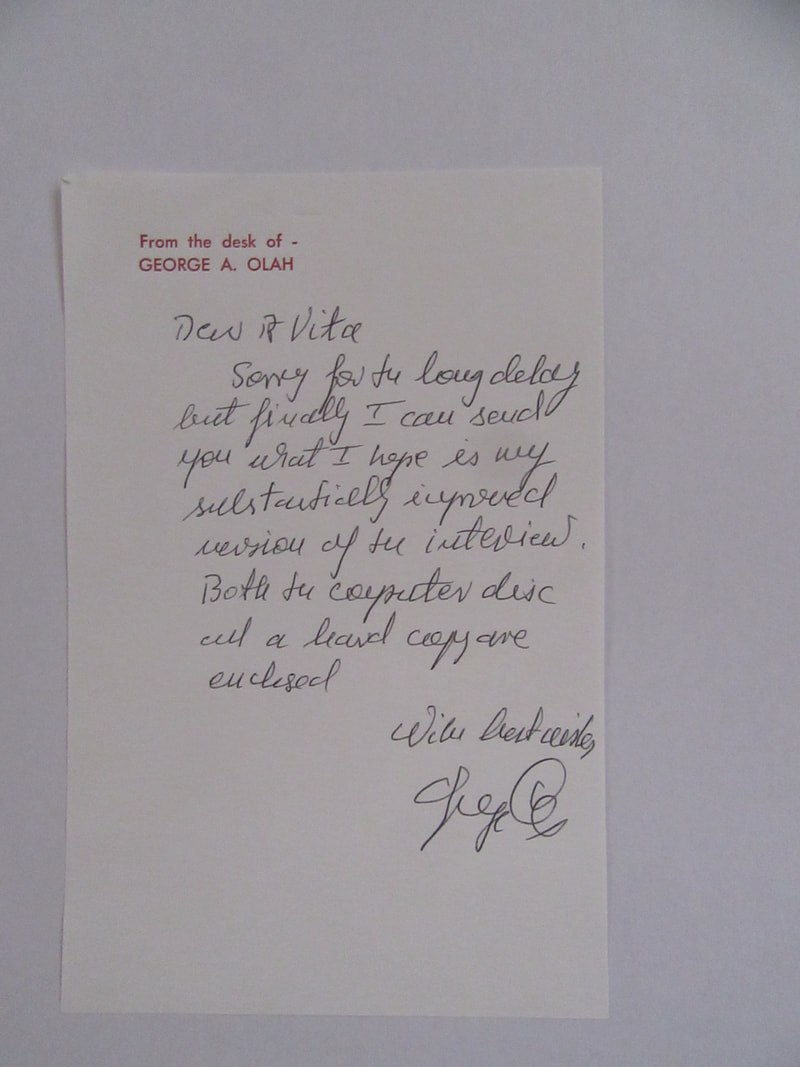 From the desk of -
GEORGE A. OLAH
Dear Vita
Sorry for the long delay
but finally I can send
you what I hope is my
substantially improved
version of the interview.
Both the computer disc
and a hard copy are
enclosed
With best wishes
George